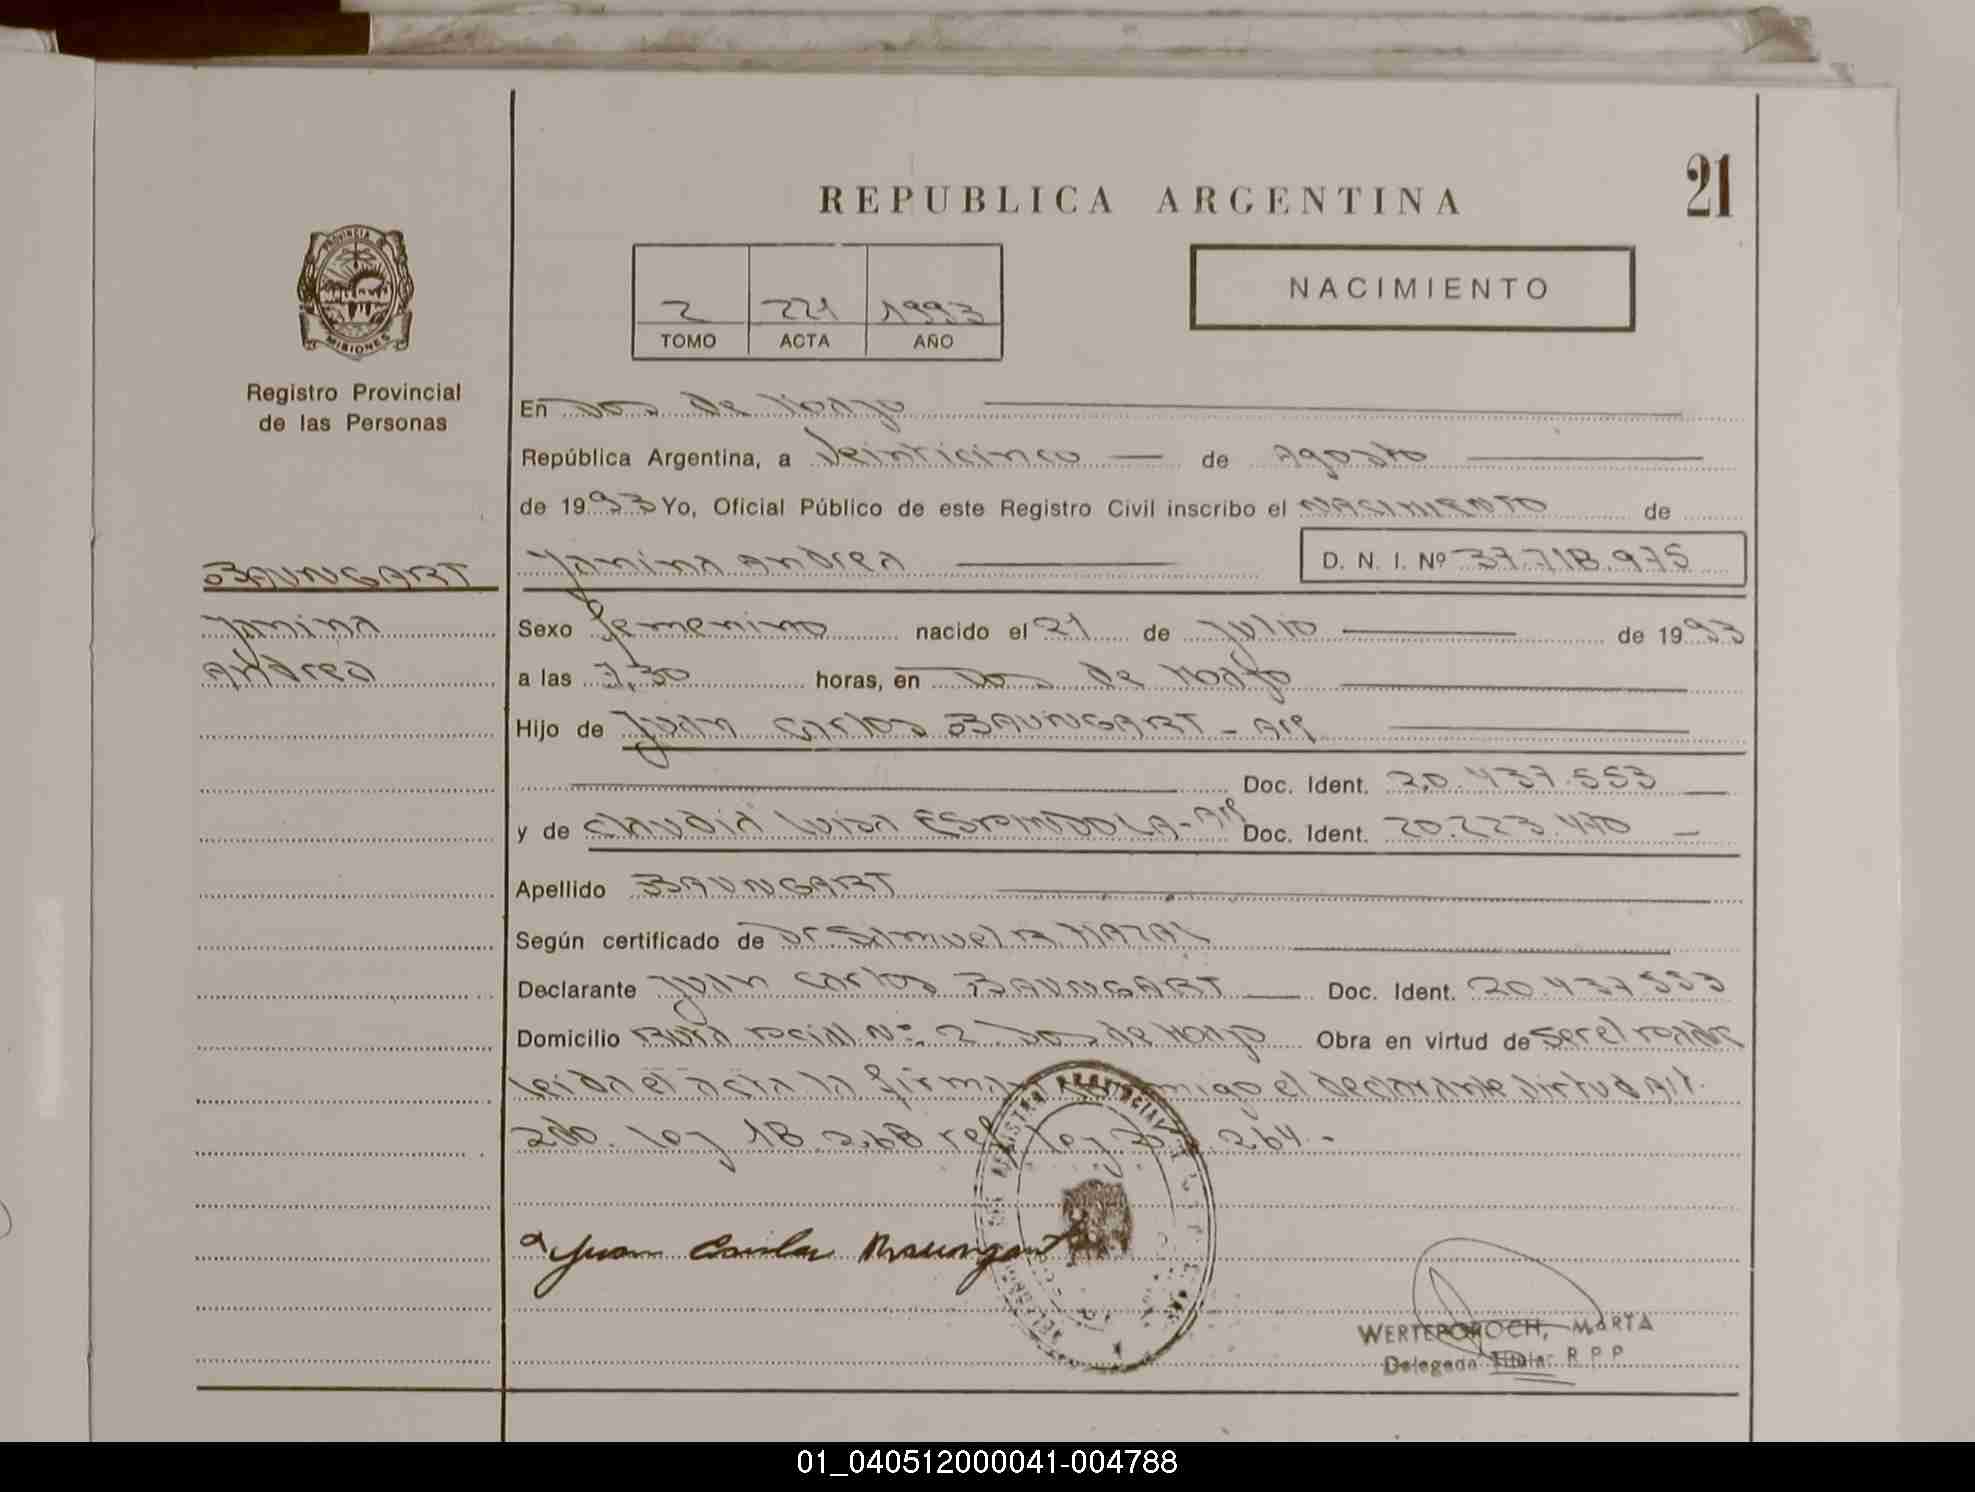 REPUBLICA ARGENTINA
21
PROVINCIA DE
MISIONES
Registro Provincial
de las Personas
2 221 1993
TOMO ACTA AÑO
NACIMIENTO
En Dos de Mayo
República Argentina, a Veinticinco — de Agosto
de 1993 Yo, Oficial Público de este Registro Civil inscribo el NACIMIENTO de
BAUNGART
Yanina Andrea D. N. I. Nº 37.718.975
Yanina
Andrea
Sexo femenino nacido el 21 de Julio de 1993
a las 7,30 horas, en Dos de Mayo
Hijo de Juan Carlos BAUNGART - Arg
Doc. Ident. 20.437.553
y de Claudia Luisa ESPINDOLA - Arg Doc. Ident. 20.223.470
Apellido BAUNGART
Según certificado de Dr. Samuel
Declarante Juan Carlos BAUNGART Doc. Ident. 20.437.553
Domicilio Ruta Nº 2 Dos de Mayo Obra en virtud de ser el padre
leida el acta la firma el declarante virtud Art.
ley 18.268 ley 20.264.-
Juan Carlos Baungart
WERTEPOROCH, MARTA
Delegada Titular R P P
01_040512000041-004788